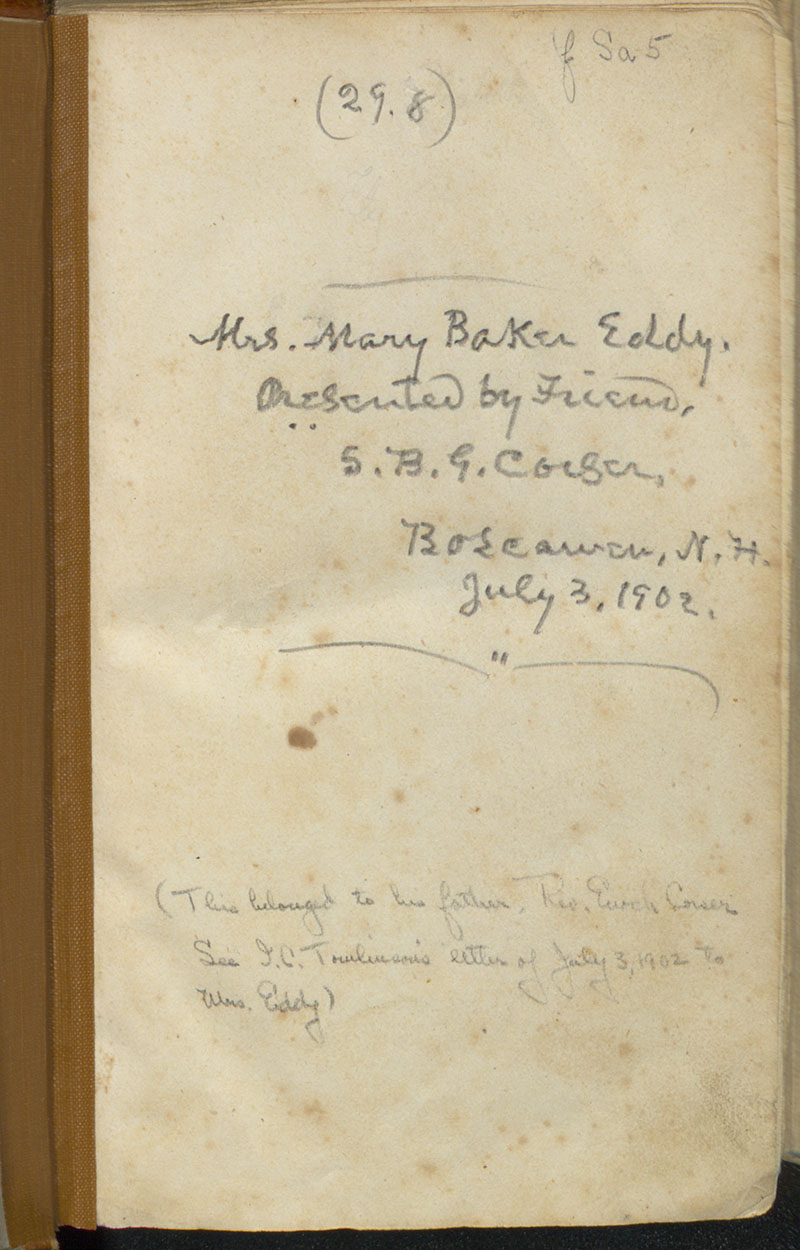 f Sa 5
(29.8)
Mrs. Mary Baker Eddy.
Presented by Friend,
S. B. G. Corser,
Boscawen, N. H.
July 3, 1902.
"
(This belonged to his father, Rev. Enoch Corser
See I. C. Tomlinson's letter of July 3, 1902 to
Mrs. Eddy)